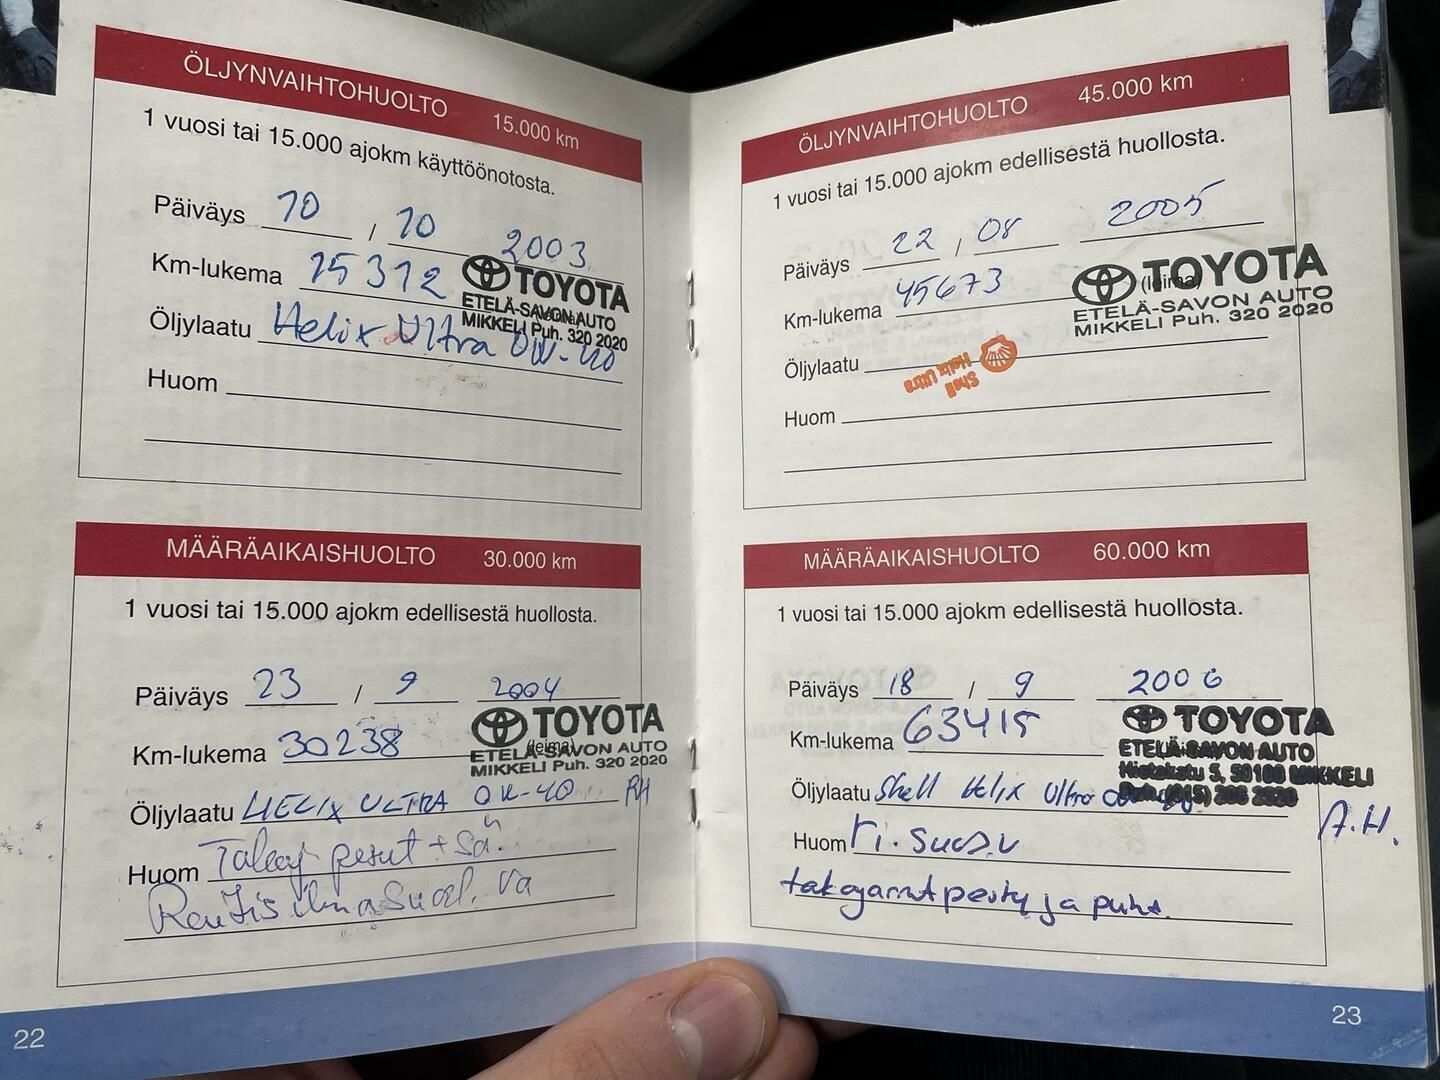 ÖLJYNVAIHTOHUOLTO 15.000 km
1 vuosi tai 15.000 ajokm käyttöönotosta.
Päiväys 10 / 10 2003
Km-lukema 15312
TOYOTA
ETELÄ-SAVON AUTO
MIKKELI Puh. 320 2020
Öljylaatu Helix Ultra 0W-40
Huom
MÄÄRÄAIKAISHUOLTO 30.000 km
1 vuosi tai 15.000 ajokm edellisestä huollosta.
Päiväys 23 / 9 2004
Km-lukema 30238
TOYOTA
(leima)
ETELÄ-SAVON AUTO
MIKKELI Puh. 320 2020
Öljylaatu HELIX ULTRA 0W-40 RH
Huom pesut +
22
ÖLJYNVAIHTOHUOLTO 45.000 km
1 vuosi tai 15.000 ajokm edellisestä huollosta.
Päiväys 22 / 08 2005
Km-lukema 45673
TOYOTA
(leima)
ETELÄ-SAVON AUTO
MIKKELI Puh. 320 2020
Öljylaatu Shell Helix Ultra
Huom
MÄÄRÄAIKAISHUOLTO 60.000 km
1 vuosi tai 15.000 ajokm edellisestä huollosta.
Päiväys 18 / 9 2006
Km-lukema 63415
TOYOTA
ETELÄ-SAVON AUTO
Hietakatu 5, 50100 MIKKELI
Öljylaatu Shell Helix Ultra
A.H.
Huom ri. suod.v
takajarrut pesty ja puhd.
23